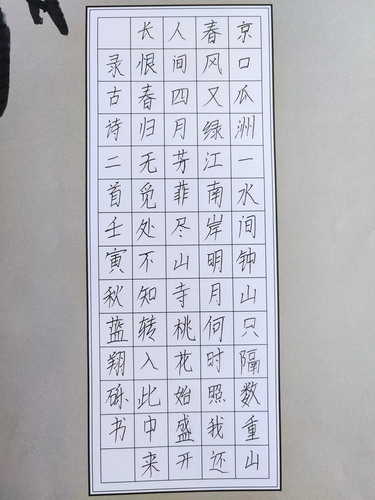 京口瓜洲一水间钟山只隔数重山
春风又绿江南岸明月何时照我还
人间四月芳菲尽山寺桃花始盛开
长恨春归无觅处不知转入此中来
录古诗二首壬寅秋蓝翔砾书